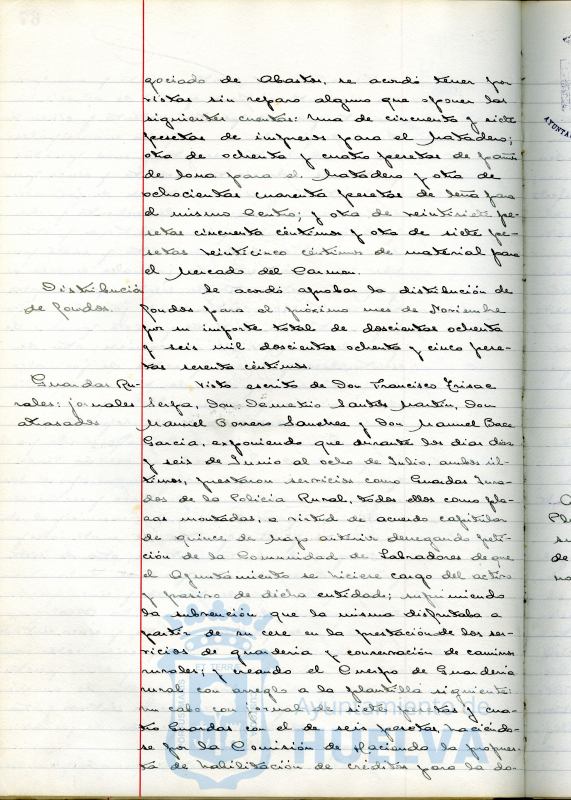 gociado de Abastos, se acordó tener por
vistas sin reparo alguno que oponer las
siguientes cuentas: una de cincuenta y siete
pesetas de impresos para el Matadero;
otra de ochenta y cuatro pesetas de paños
de lona para el Matadero y otra de
ochocientas cuarenta pesetas de leña para
el mismo Centro; y otra de veintisiete pe-
setas cincuenta céntimos y otra de siete pe-
setas veinticinco céntimos de material para
el Mercado del Carmen.
Distribución
de fondos.
Se acordó aprobar la distribución de
fondos para el próximo mes de Noviembre
por su importe total de doscientas ochenta
y seis mil doscientas ochenta y cinco pese-
tas sesenta céntimos.
Guardas Ru-
rales: jornales
atrasados
Visto escrito de Don Francisco
Serpa, Don Demetrio Santos Martín, Don
Manuel Borrero Sanchez y Don Manuel Baez
Garcia, exponiendo que durante los dias diez
y seis de Junio al ocho de Julio, ambos úl-
timos, prestaron servicios como Guardas Jura-
dos de la Policia Rural, todos ellos como pla-
zas montadas, a virtud de acuerdo capitular
de quince de Mayo anterior denegando peti-
ción de la Comunidad de Labradores de que
el Ayuntamiento se hiciere cargo del activo
y pasivo de dicha entidad; suprimiendo
la subvención que la misma disfrutaba a
partir de su cese en la prestación de los ser-
vicios de guarderia y conservación de caminos
rurales; y creando el Cuerpo de Guarderia
rural con arreglo a la plantilla siguiente:
un cabo con jornal de siete pesetas y cua-
tro Guardas con el de seis pesetas, haciéndo-
se por la Comisión de Hacienda la propues-
ta de habilitación de créditos para la do-
Ayuntamiento de
HUELVA